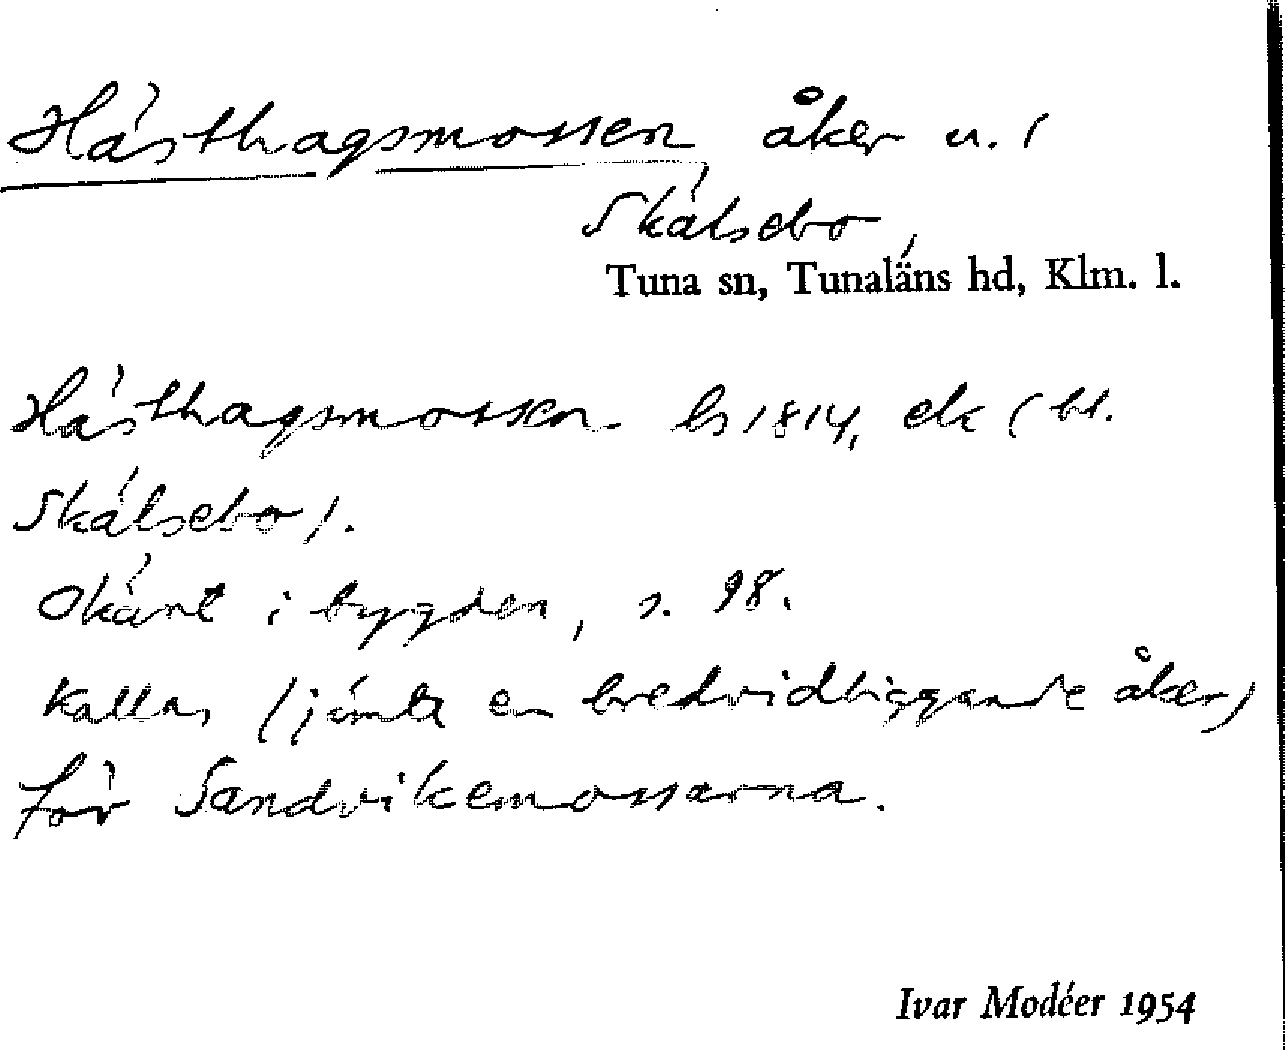 Hästhagsmossen åker u. (
Skälsebo,
Tuna sn, Tunaläns hd, Klm. l.
Hästhagsmossen ls 1814, ek (bl.
Skälsebo).
Okänt i bygden, s. 98.
Kallas (jämte en bredvidliggande åker)
för Sandvikemossarna.
Ivar Modéer 1954